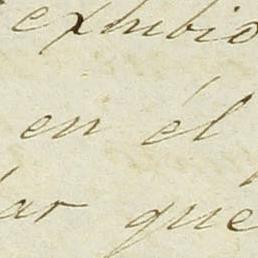 exhibio
en él
lar que